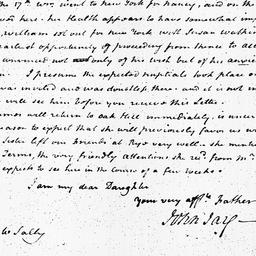 the 17th Ult. went to New York for Nancy, and on the
was here. his Health appears to have somewhat imp
William set out for New York with Susan
earliest opportunity of proceeding from thence to
not only of his wish but of his anxiety
I presume the expected nuptials took place on
was invited and was doubtless there. and it is not im
will see him before you receive this Letter.
will return to Oak Hill immediately, is uncer
reason to expect that she will previously favor us w
Sister left our friends at Rye very well. she ment
Terms, the very friendly attentions she recd. from Mr.
expects to see her in the course of a few weeks.
I am my dear Daughter
your very affte. Father
John Jay
Sally